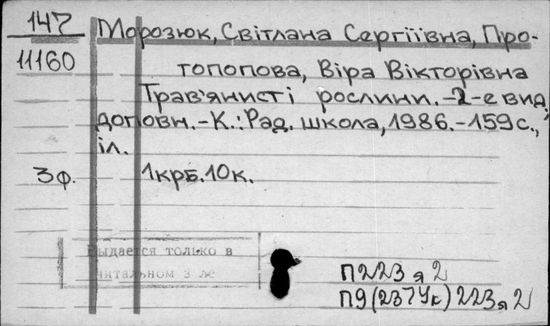 147 Морозюк, Світлана Сергіївна, Про-
11160 топопова, Віра Вікторівна
Трав'янисті рослини.-2-е вид,
доповн.-К.:Рад. школа, 1986.-159с.,
іл.
3ф. 1крб.10к.
Выдается только в
читальном з ле
П223я2
П9(237Ук)223я2